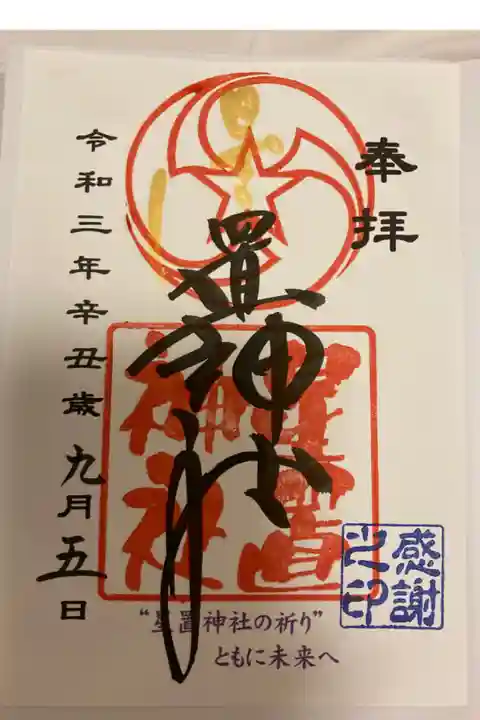 奉拝
星置神社
星置神社
感謝之印
令和三年辛丑歳九月五日
“星置神社の祈り”
ともに未来へ